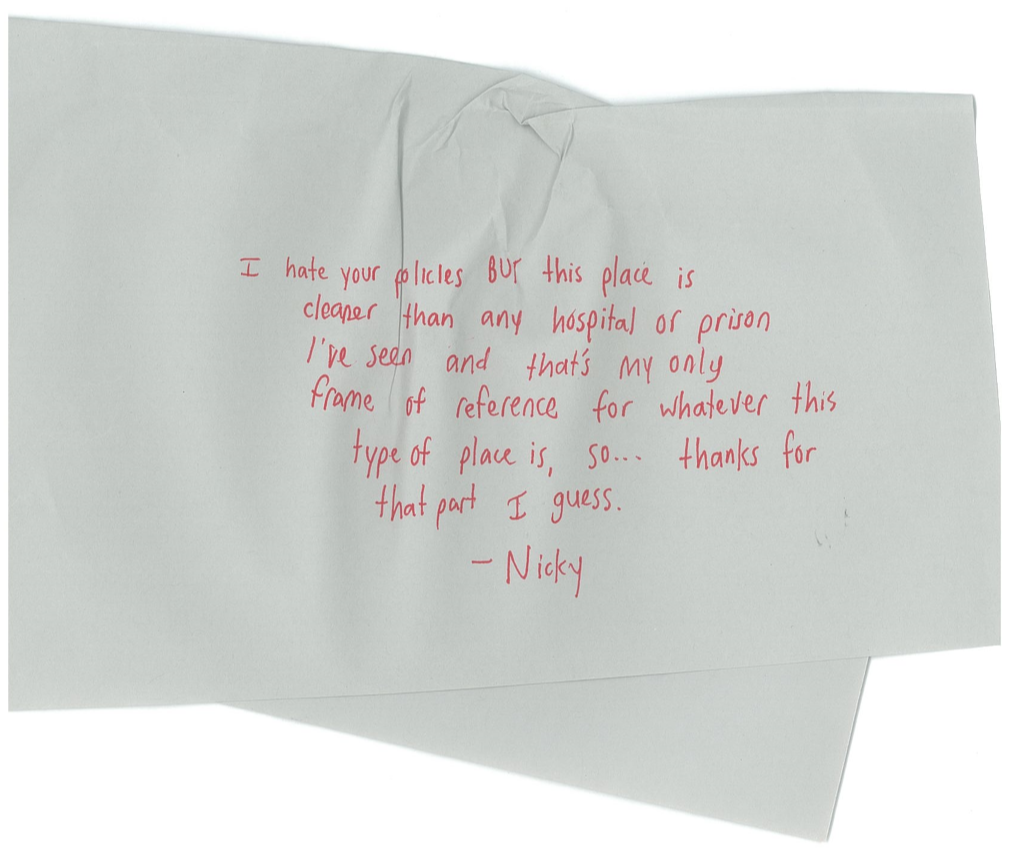 I hate your policies BUT this place is
cleaner than any hospital or prison
I've seen and that's my only
frame of reference for whatever this
type of place is, so... thanks for
that part I guess.
- Nicky